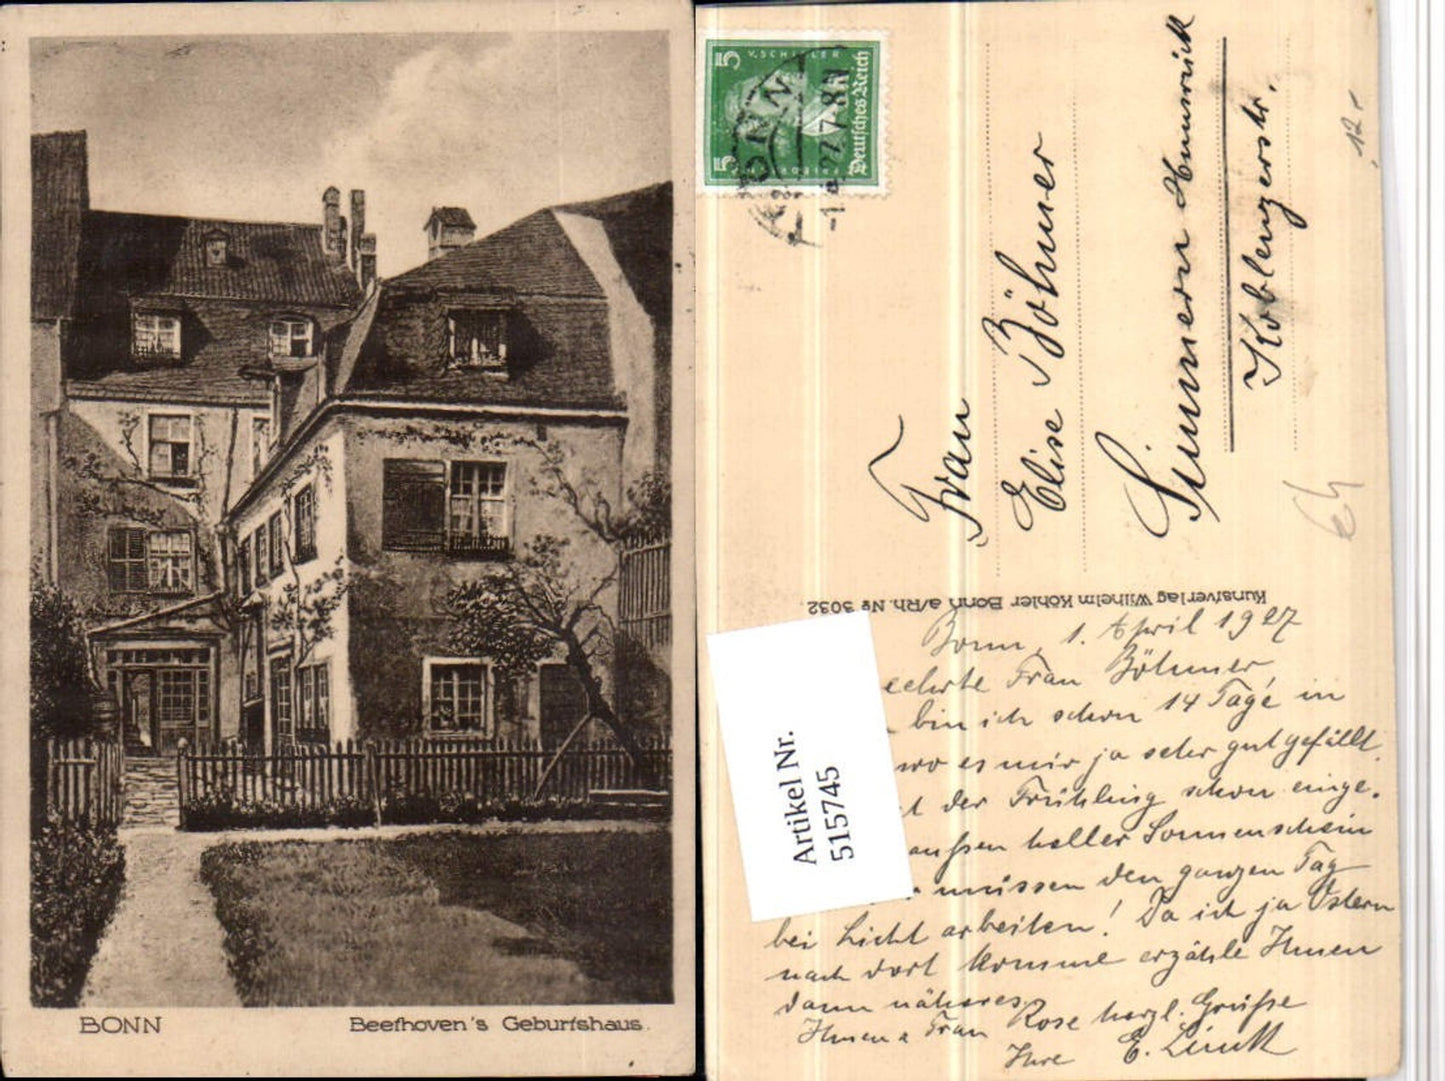 BONN
Beethoven's Geburtshaus.
5 V. SCHILLER 5
Deutsches Reich
BONN
-1. 27. 7-8 N
Frau
Elise Böhmer
Simmern Hunsrück
Koblenzerstr.
12,-
Kunstverlag Wilhelm Köhler Bonn a/Rh. № 3032.
Artikel Nr.
515745
Bonn, 1. April 1927
eehrte Frau Böhmer,
bin ich schon 14 Tage in
wo es mir ja sehr gut gefällt.
t der Frühling schon einge-
außen heller Sonnenschein
müssen den ganzen Tag
bei Licht arbeiten! Da ich ja Ostern
nach dort komme erzähle Ihnen
dann näheres.
Ihnen u Frau Rose herzl. Grüße
Ihre E.